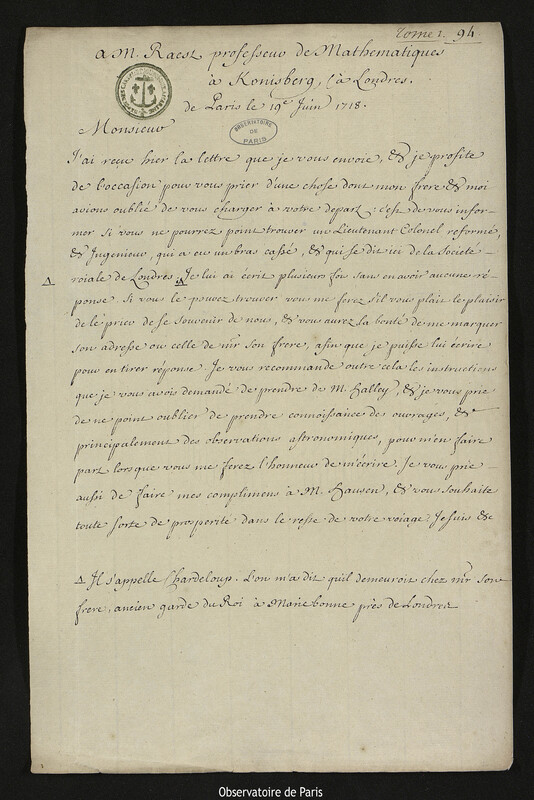 Tome 1. 94
A M. Raest professeur de Mathematiques
à Konisberg, à Londres.
de Paris le 19e Juin 1718.
OBSERVATOIRE DE PARIS
Monsieur
J'ai reçu hier la lettre que je vous envoie, & je profite
de l'occasion pour vous prier d'une chose dont mon frere & moi
avions oublié de vous charger à votre depart; c'est de vous infor-
mer si vous ne pourrez point trouver un Lieutenant Colonel reformé,
& Ingenieur, qui a eu un bras cassé, & qui se dit ici de la Société
Δ roiale de Londres. Δ Je lui ai écrit plusieurs fois sans en avoir aucune ré-
ponse. Si vous le pouvez trouver vous me ferez s'il vous plait le plaisir
de le prier de se souvenir de nous, & vous aurez la bonté de me marquer
son adresse ou celle de mr. son frere, afin que je puisse lui écrire
pour en tirer réponse. Je vous recommande outre cela les instructions
que je vous avois demandé de prendre de M. Halley, & je vous prie
de ne point oublier de prendre connoissance des ouvrages, &
principalement des observations astronomiques, pour m'en faire
part lorsque vous me ferez l'honneur de m'écrire. Je vous prie
aussi de faire mes complimens à M. Hausen, & vous souhaite
toute sorte de prosperité dans le reste de votre voiage. Je suis &c
Δ Il s'appelle Chardeloup. L'on m'a dit qu'il demeuroit chez mr. son
frere, ancien garde du Roi à Mariebonne près de Londres
Observatoire de Paris